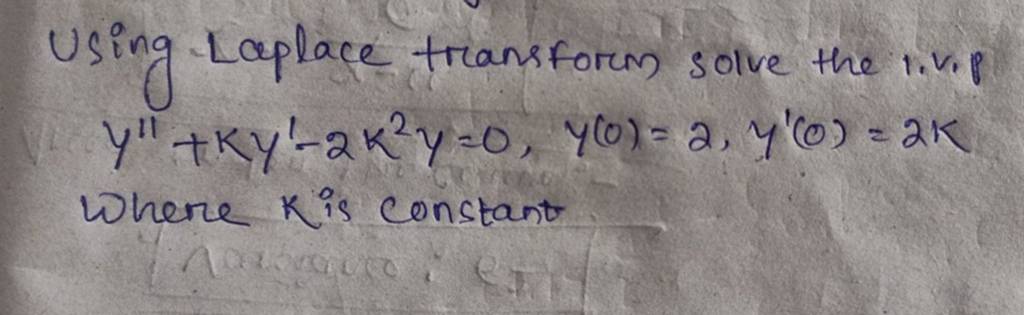 Using Laplace transform solve the i.v.p
y'' + Ky' - 2K²y = 0, y(0) = 2, y'(0) = 2K
Where K is constant